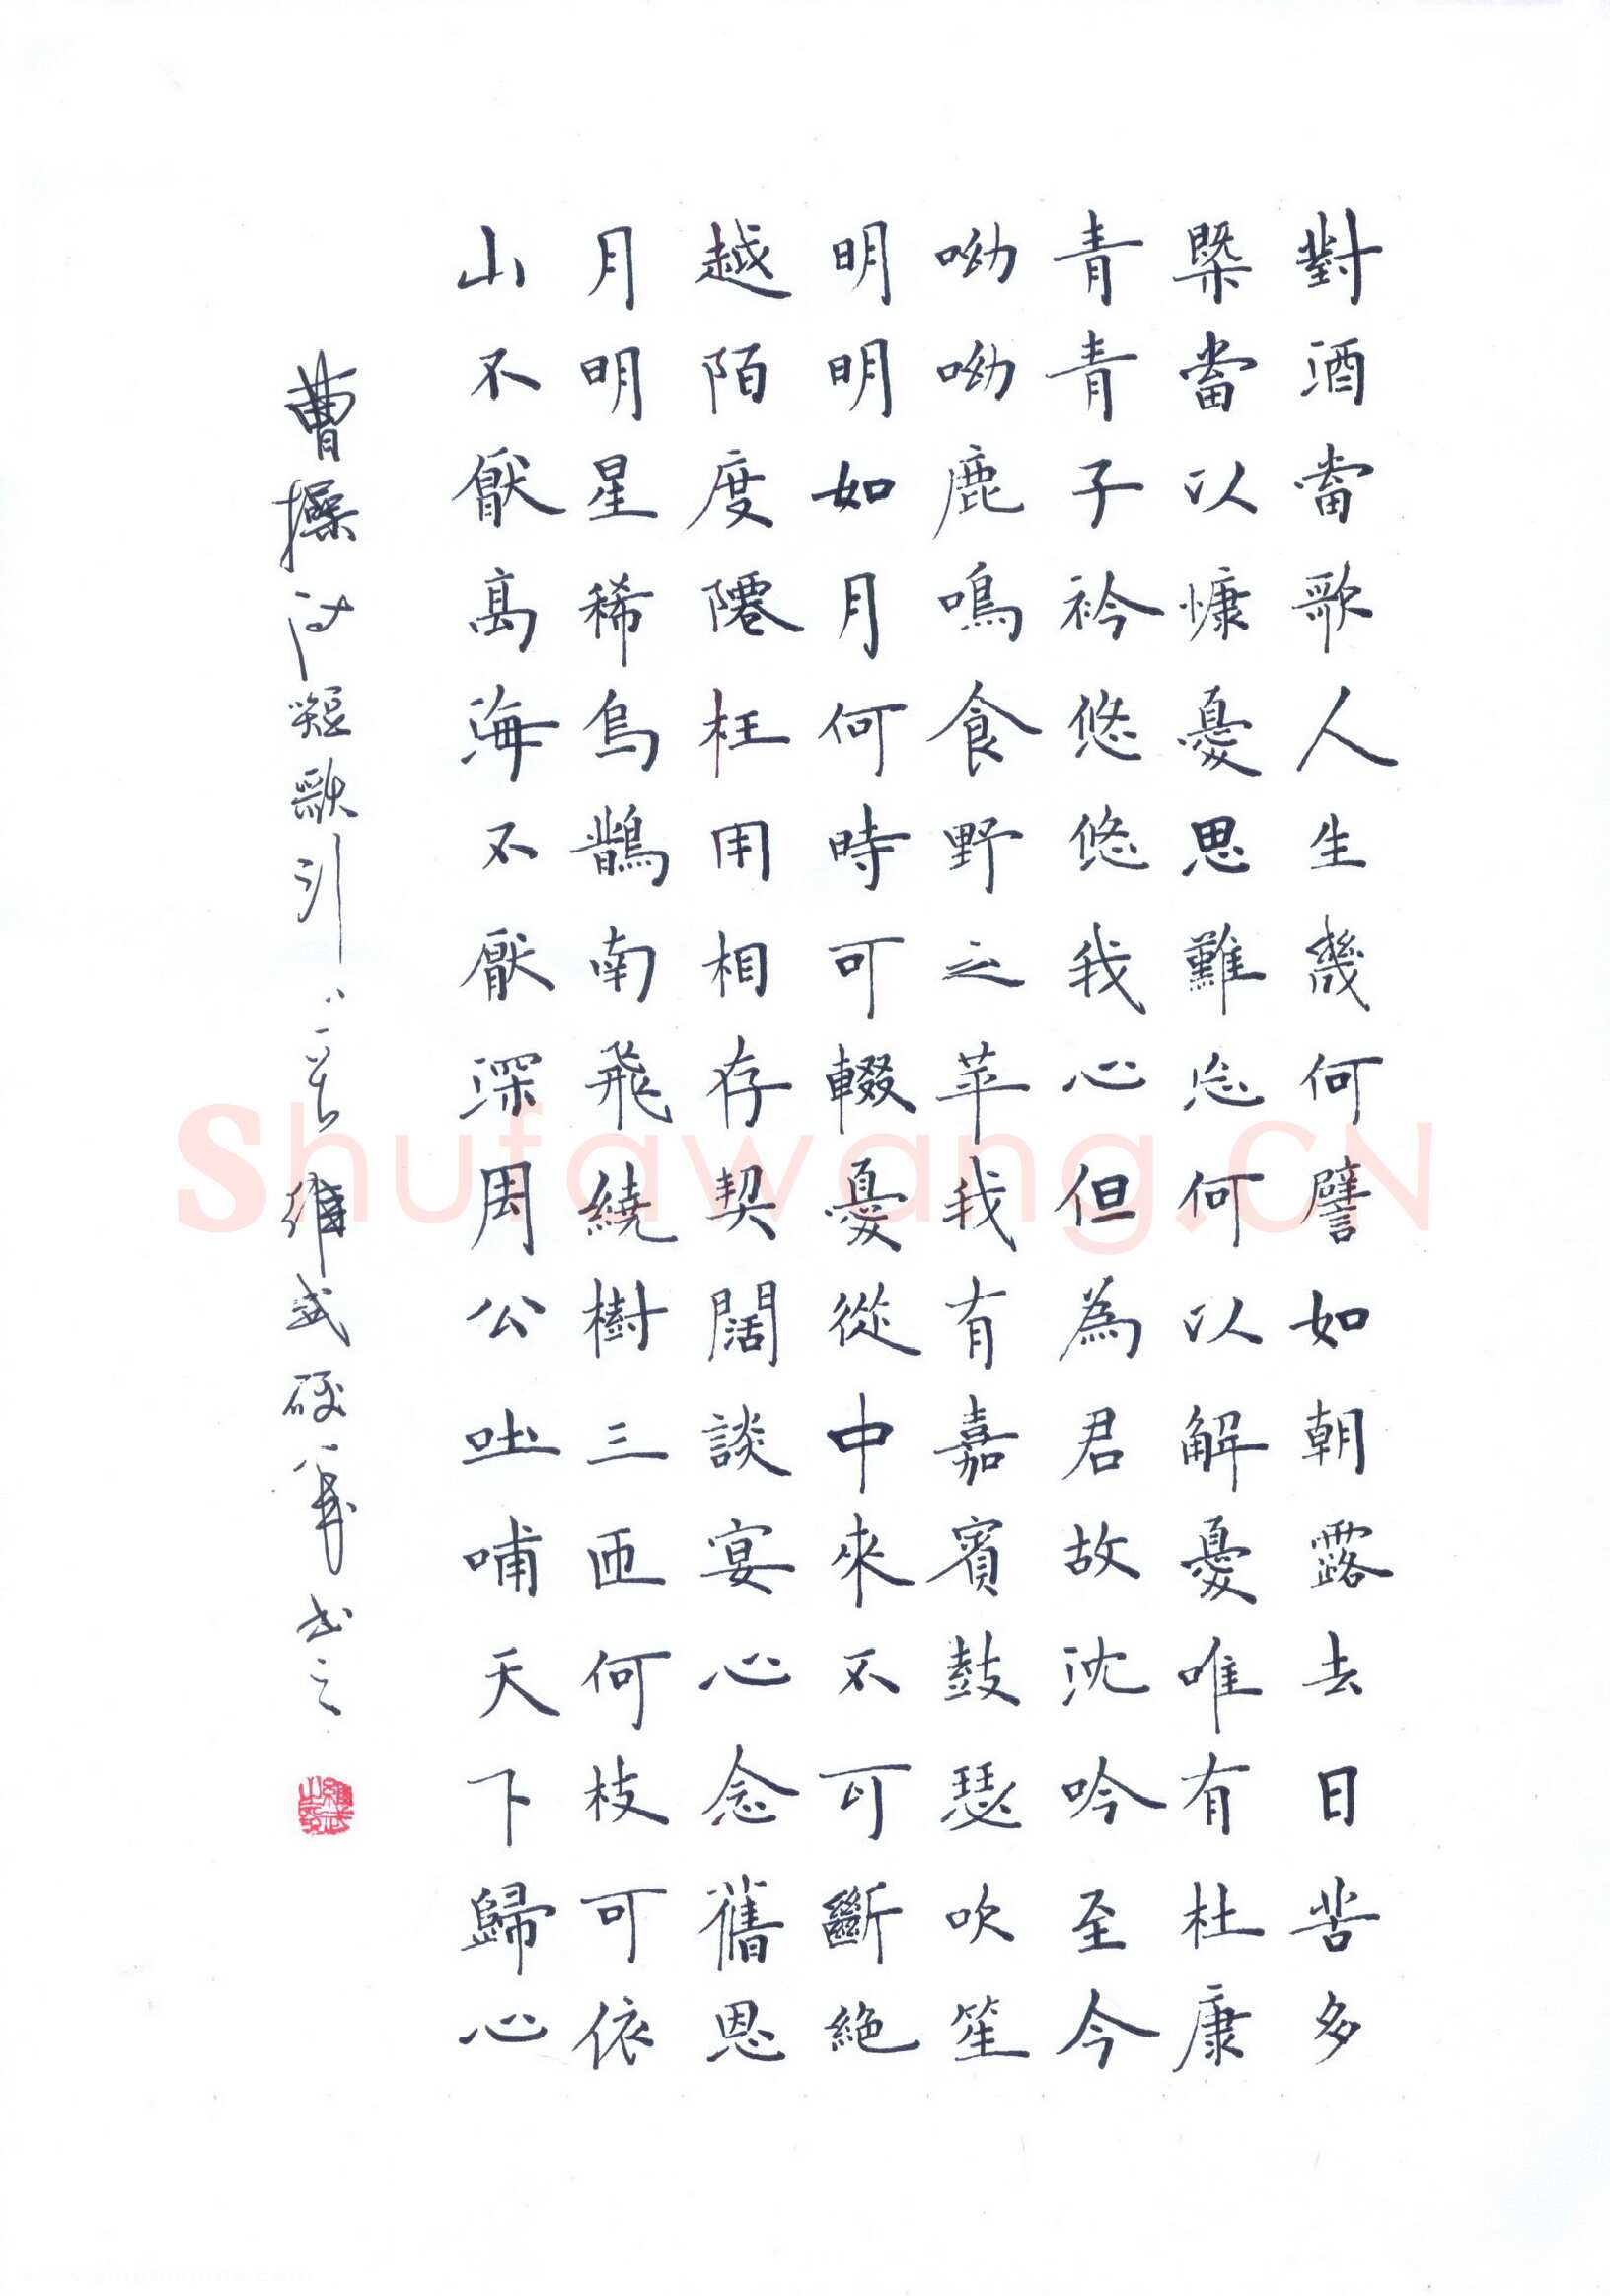 對酒當歌人生幾何譬如朝露去日苦多
槩當以慷憂思難忘何以解憂唯有杜康
青青子衿悠悠我心但為君故沈吟至今
呦呦鹿鳴食野之苹我有嘉賓鼓瑟吹笙
明明如月何時可輟憂從中來不可斷絕
越陌度阡枉用相存契闊談宴心念舊恩
月明星稀烏鵲南飛繞樹三匝何枝可依
山不厭高海不厭深周公吐哺天下歸心
曹操詩短歌行 維武硬筆書之
Shufawang.CN